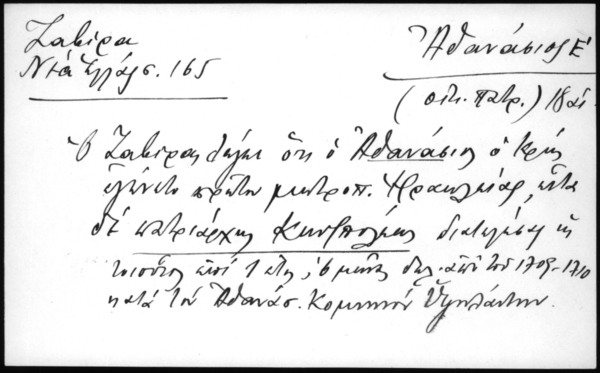 Ζαβίρα
Νέα Ἑλλάς σ. 165
Ἀθανάσιος Ε΄
(οἰκ. πατρ.) 18 αἰ.
Ὁ Ζαβίρας λέγει ὅτι ὁ Ἀθανάσιος ὁ Κρής
ἐγένετο πρῶτον μητροπ. Ἡρακλείας, εἶτα
δὲ πατριάρχης Κων/πόλεως διατελέσας ὡς
τοιοῦτος ἐπί 1 ἔτος, 6 μῆνας δηλ. ἀπό τοῦ 1709-1710
κατά τόν Ἀθανάσ. Κομνηνόν Ὑψηλάντην.